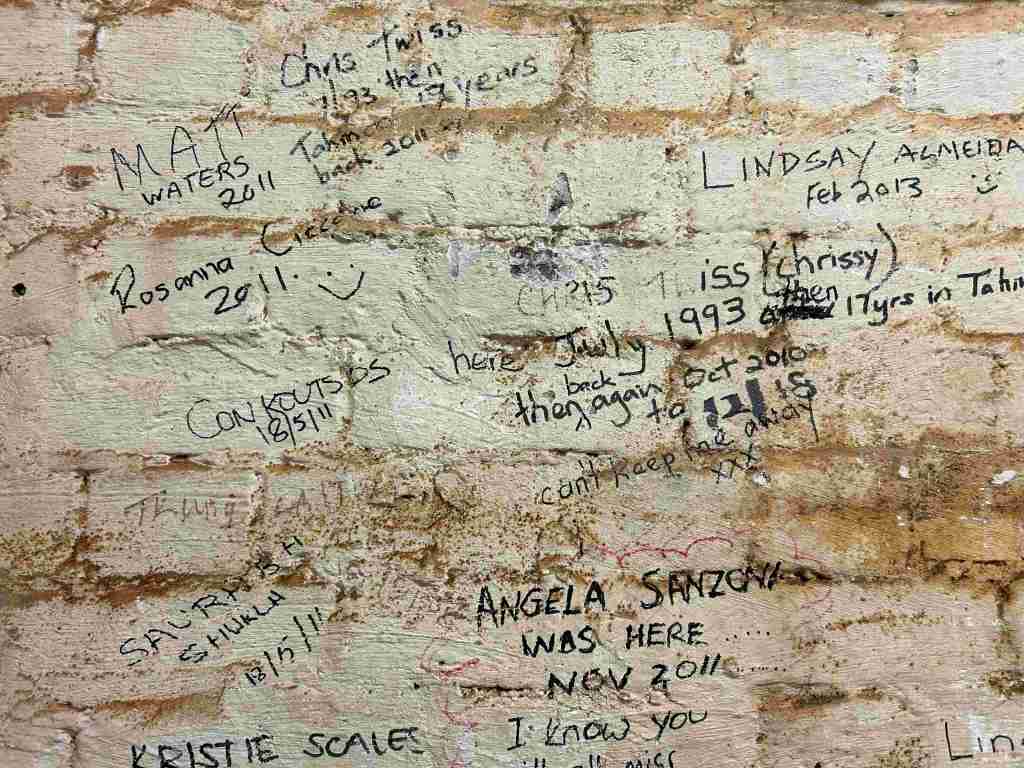 Chris Twiss
1/93 then
17 years
Tahiti
back 2011
MATT
WATERS
2011
LINDSAY ALMEIDA
Feb 2013
Rosanna
2011.
CHRIS iss (Chrissy)
here July 1993 then 17yrs in
then back again Oct 2010
to
can't keep me away
xxx
CONKOUTSOS
18/5/11
SAURABH
SHUKLA
18/5/11
ANGELA
WAS HERE ......
NOV 2011
KRISTIE SCALES
I know you
miss